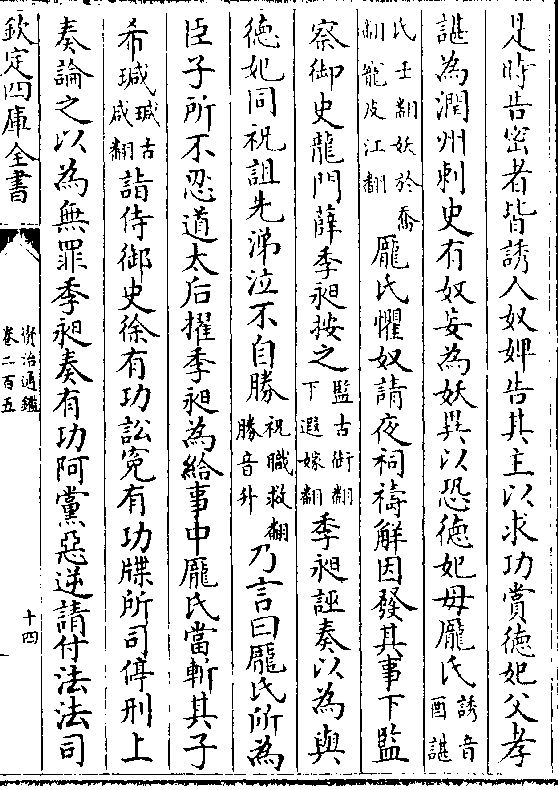 是時告密者皆誘人奴婢告其主以求功賞德妃父孝
諶為潤州刺史有奴妄為妖異以恐德妃母龐氏誘音酉諶
氏壬翻妖於喬翻龍皮江翻龐氏懼奴請夜祠禱解因發其事下監
察御史龍門薛季昶按之監古銜翻下遐嫁翻季昶誣奏以為與
德妃同祝詛先涕泣不自勝祝職救翻勝音升乃言曰龐氏所為
臣子所不忍道太后擢季昶為給事中龐氏當斬其子
希瑊瑊古咸翻詣侍御史徐有功訟冤有功牒所司停刑上
奏論之以為無罪季昶奏有功阿黨惡逆請付法法司
欽定四庫全書
資治通鑑
卷二百五
十四